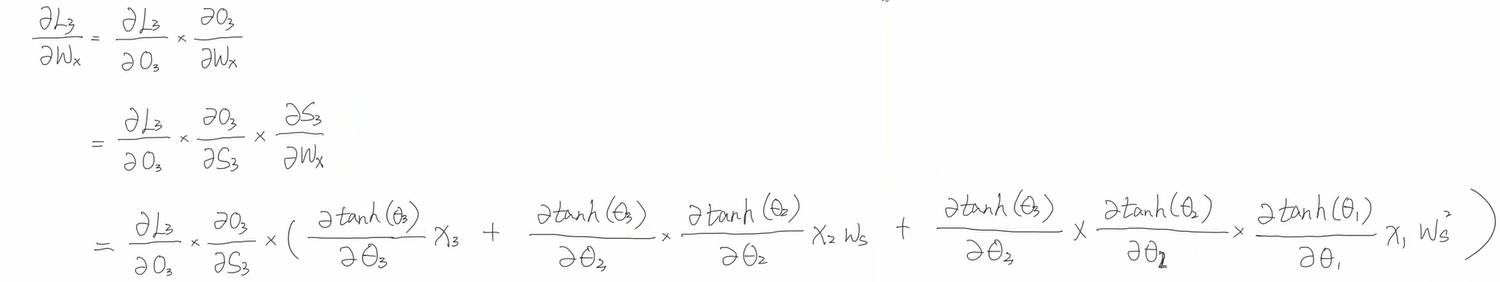 ∂L₃/∂Wₓ = ∂L₃/∂O₃ × ∂O₃/∂Wₓ
= ∂L₃/∂O₃ × ∂O₃/∂S₃ × ∂S₃/∂Wₓ
= ∂L₃/∂O₃ × ∂O₃/∂S₃ × ( ∂tanh(θ₃)/∂θ₃ X₃ + ∂tanh(θ₃)/∂θ₃ × ∂tanh(θ₂)/∂θ₂ X₂ Wₛ + ∂tanh(θ₃)/∂θ₃ × ∂tanh(θ₂)/∂θ₂ × ∂tanh(θ₁)/∂θ₁ X₁ Wₛ² )